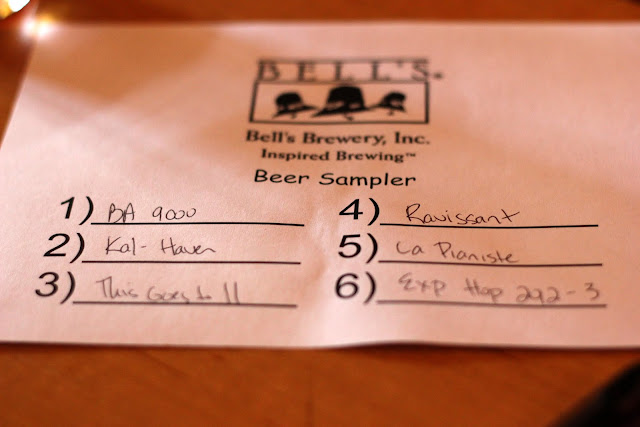 BELL'S®
Bell's Brewery, Inc.
Inspired Brewing™
Beer Sampler
1) BA 9000
2) Kal-Haven
3) This Goes to 11
4) Ravissant
5) La Pianiste
6) Exp Hop 292-3